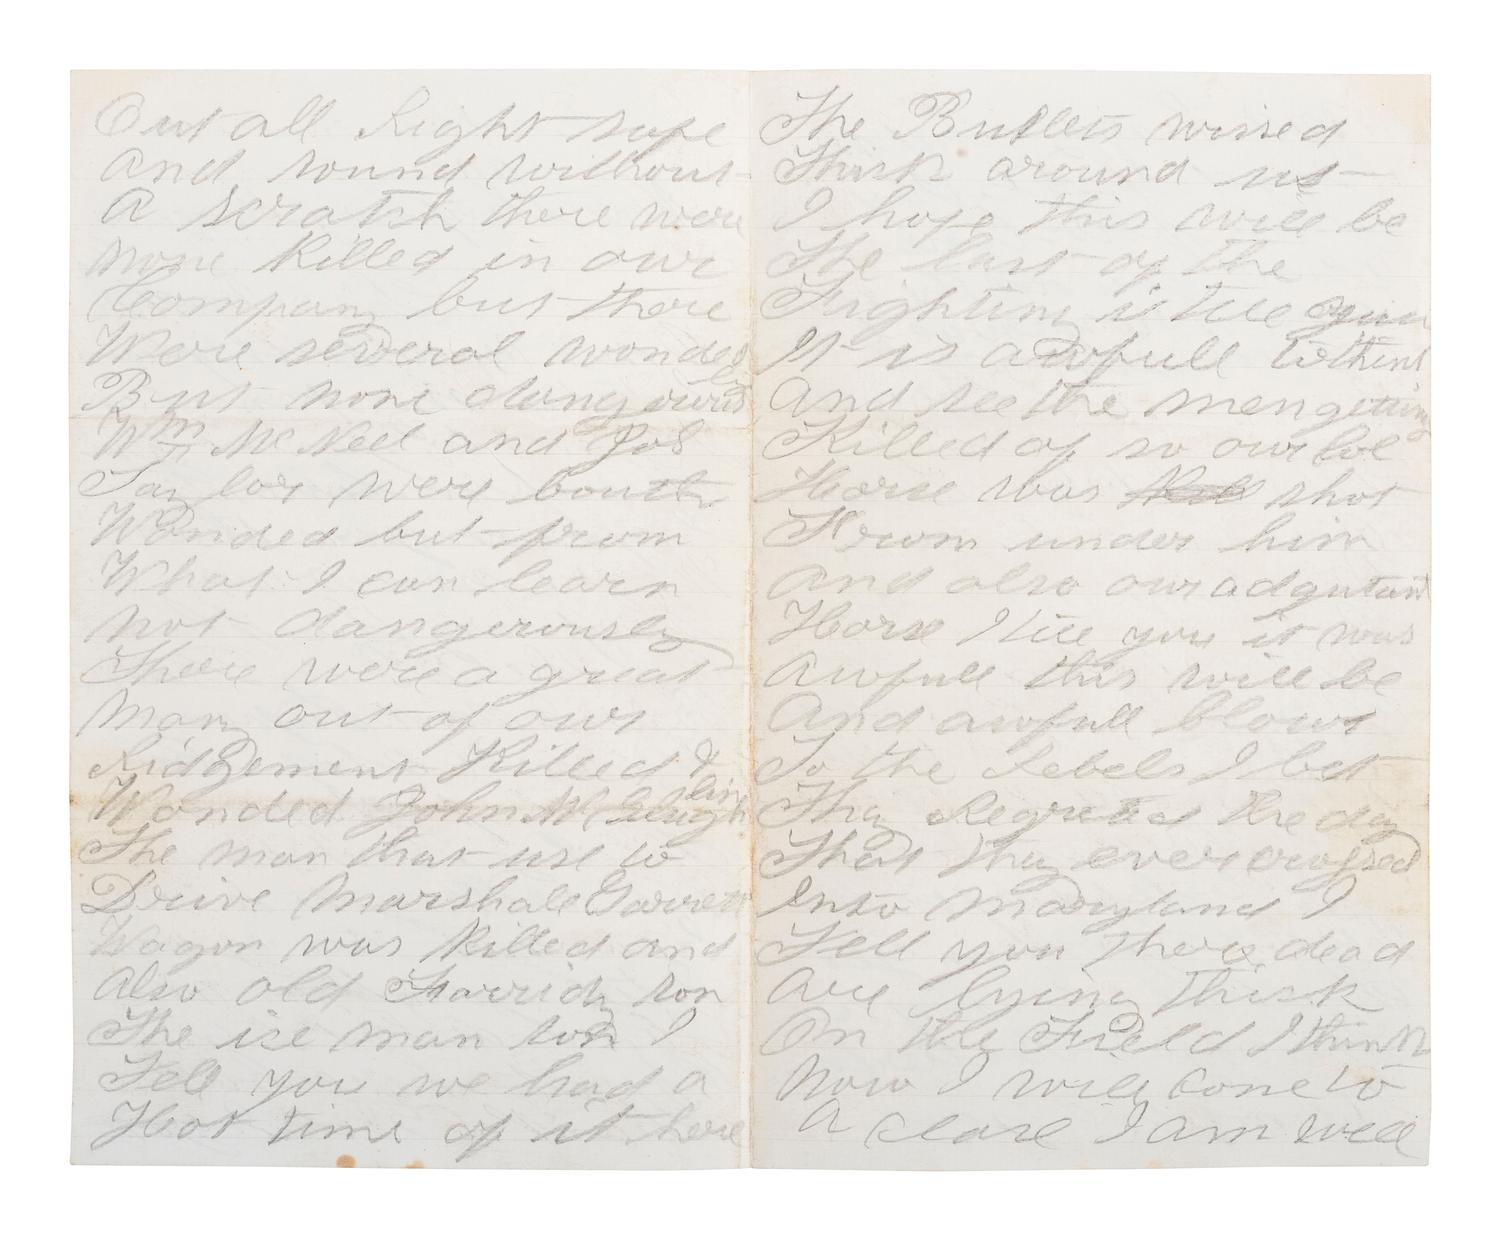 Out all Right safe
And sound without
A scratch there were
none Killed in our
Company but there
Were several wonded
But none dangerous
Wm McNeel and Job
Taylor were bouth
Wonded but from
What I can learn
Not dangerously
There were a great
Many out of our
Ridgement Killed &
Wonded John McLaughlin
The man that use to
Drive Marshale Garrett
Wagon was Killed and
Also old son
The ise man son I
Tell you we had a
Hot time of it here
The Bullets wised
Thick around us
I hope this will be
The last of the
Fighting it tell again
It is awfull to think
And see the men getting
Killed of so our Col
Horse was shot
From under him
And also our adgutant
Horse I tell you it was
Awfull this will be
And awfull blow
To the Rebels I bet
Thay Regreted the day
That thay ever crossed
Into Maryland I
Tell you there dead
Are lying thick
On the Field I think
Now I will come to
A close I am well